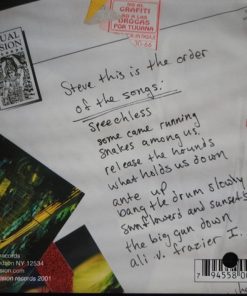 NO AL
GRAFITI
NO A LAS
DROGAS
POR TIJUANA
30-66
UAL
SION
Steve this is the order
of the songs:
speechless
some came running
snakes among us
release the hounds
what holds us down
ante up
bang the drum slowly
sunflowers and sunsets
the big gun down
ali v. frazier I.
records
NY 12534
sion.com
ision records 2001
794558